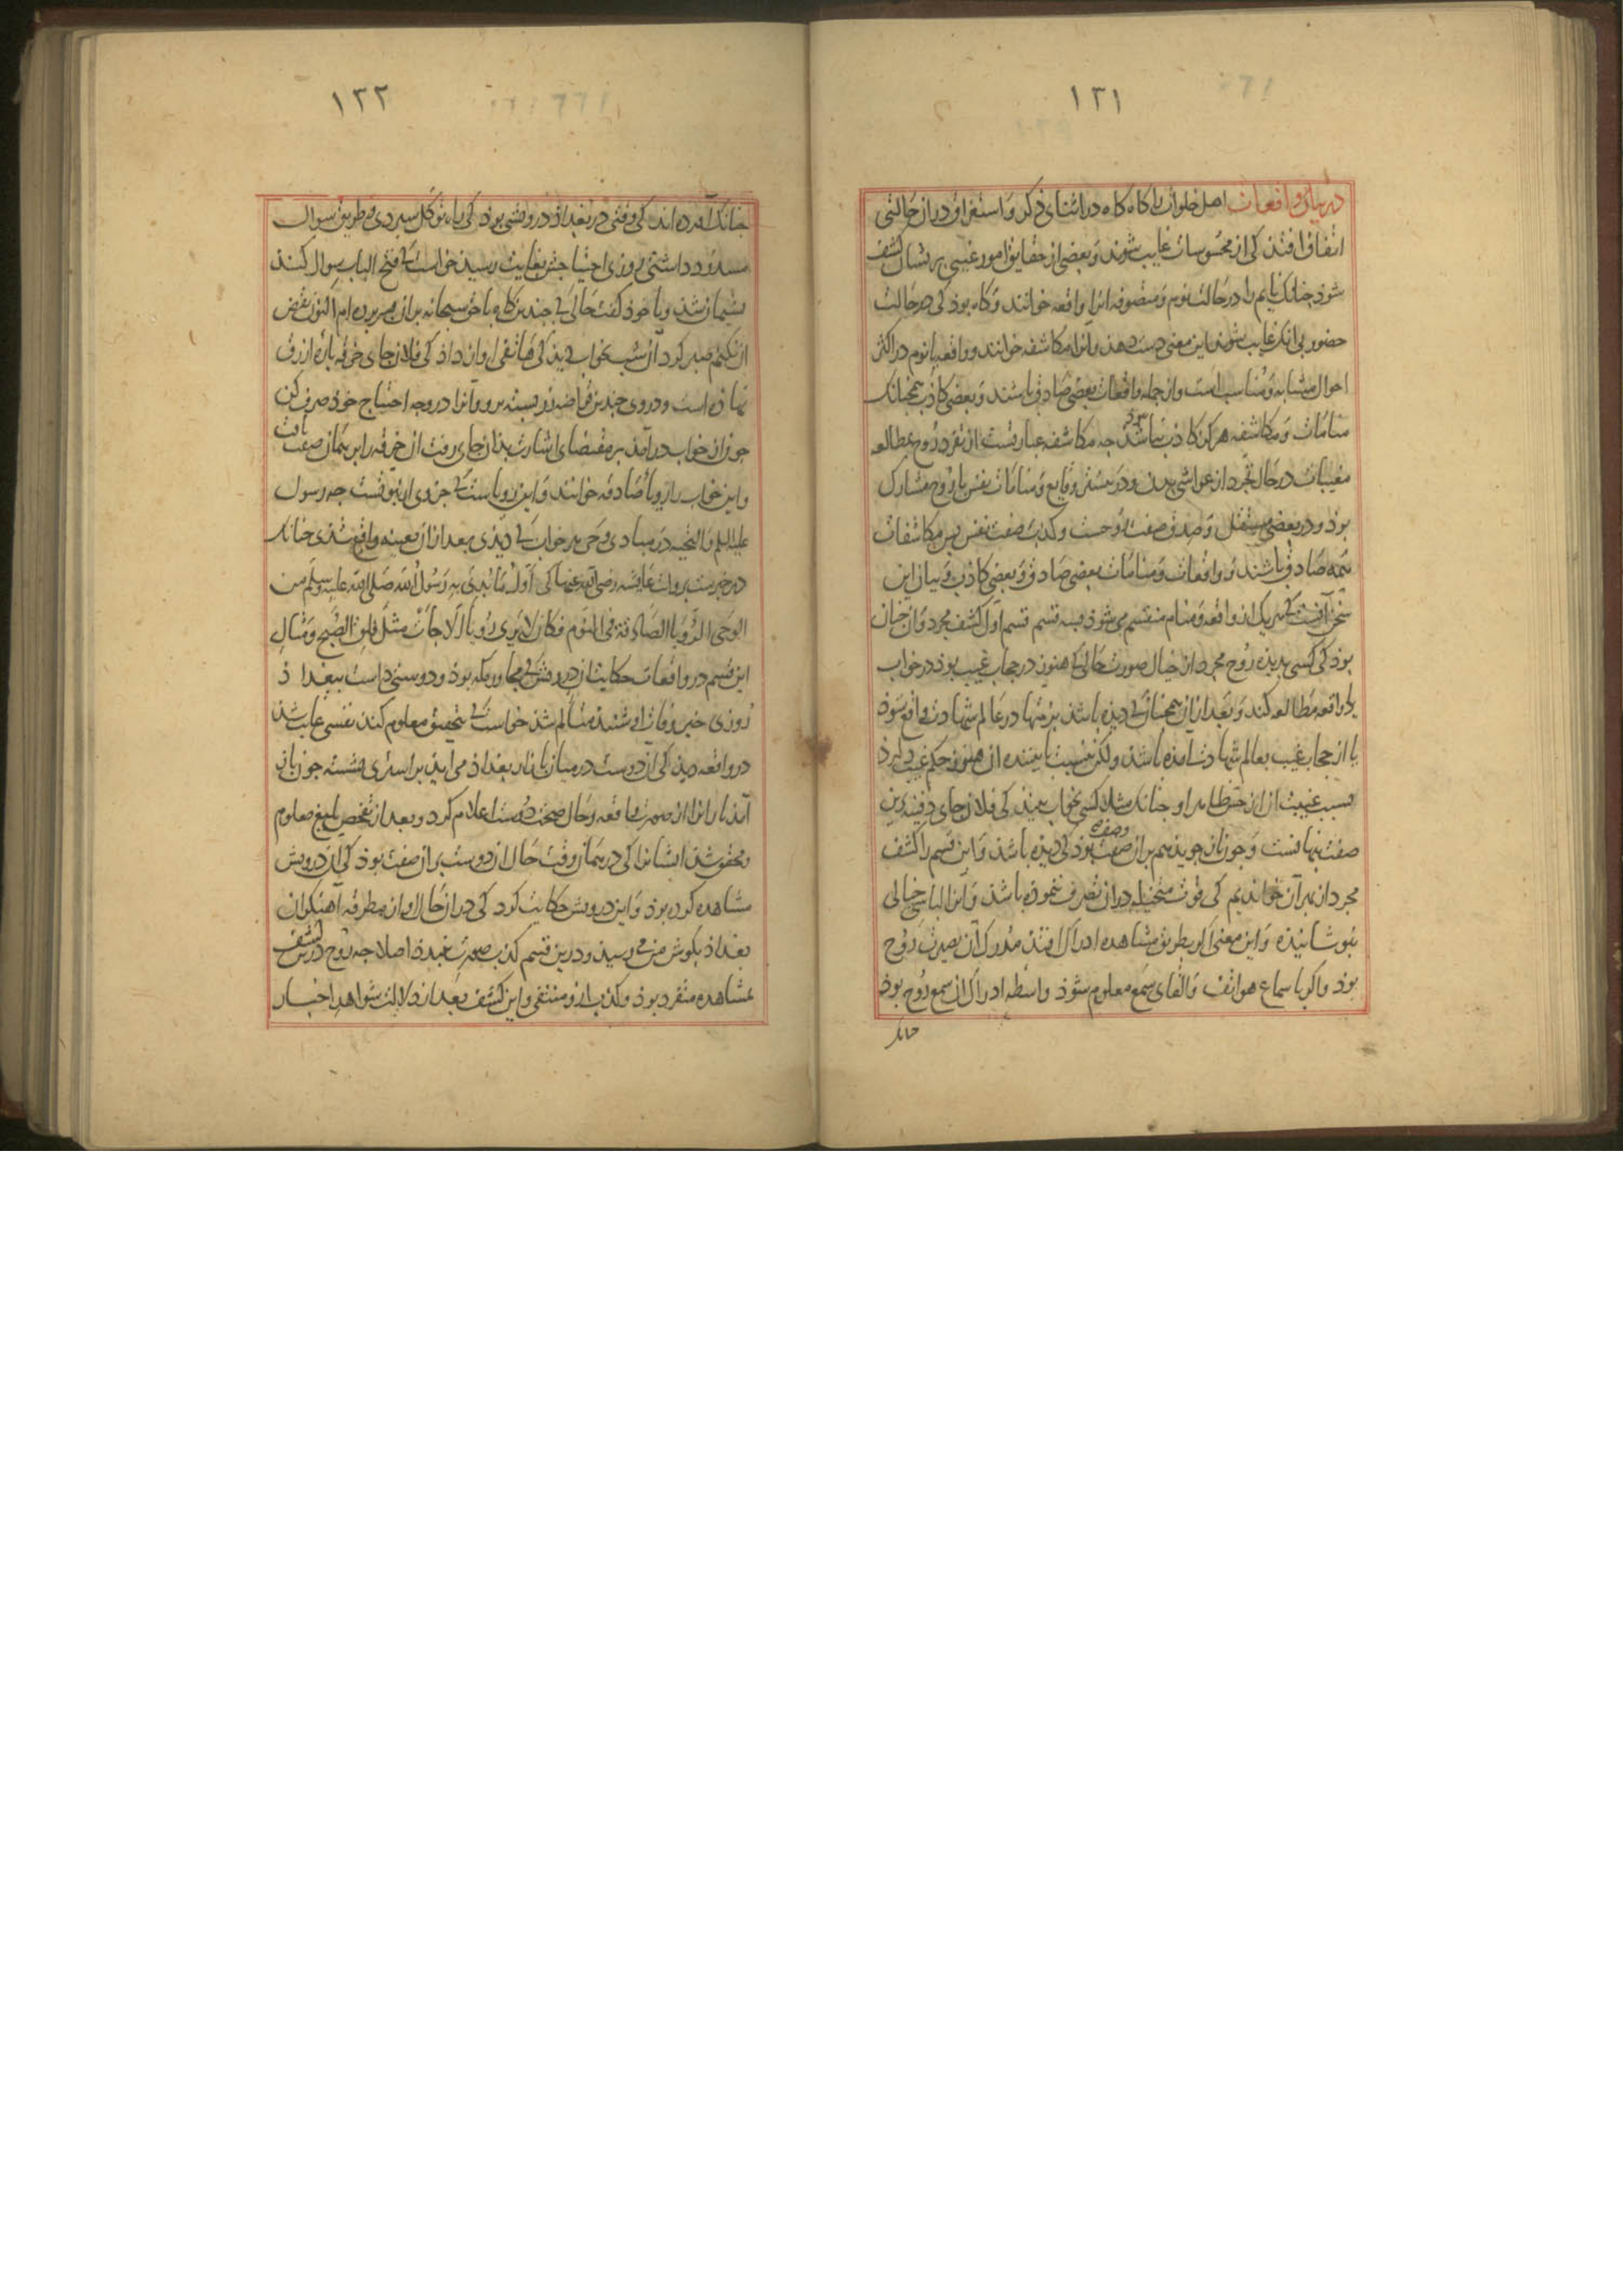 ١٢١
در بیان واقعات اهل خلوات را کاه کاه در اثنای ذکر و استغراق در ان حالتی
اتفاق افتذ کی از محسوسات غایب شوند و بعضی از حقایق امور غیبی بریشان کشف
شوذ جنانک نایم را در حالت نوم و متصوفه انرا واقعه خوانند و کاه بوذ کی در حالت
حضور بی انک غایب شوند این معنی دست دهذ و انرا مکاشفه خوانند و واقعه با نوم در اکثر
احوال مشابه و مناسب است و از جمله واقعات بعضی صادق باشند و بعضی کاذب همجنانک
منامات و مکاشفه هرکز کاذب نباشد جه مکاشفه عبارتست از تفرد روح بمطالعه
مغیبات در حال تجرد از غواشی بدن و در بیشتر وقایع و منامات نفس با روح مشارک
بوذ و در بعضی مستقل و صدق صفت روحست و کذب صفت نفس بس مکاشفات
همه صادق باشند و واقعات و منامات بعضی صادق و بعضی کاذب و بیان این
سخن آنست که هر یک از واقعه و منام منقسم می شوذ بسه قسم قسم اول کشف مجرد و ان جنان
بوذ کی کسی بدیذه روح مجرد از خیال صورت حالی که هنوز در حجاب غیب بوذ در خواب
یا واقعه مطالعه کند و بعد ازان همجنان که دیذه باشد بعینها در عالم شهادت واقع شوذ
یا از حجاب غیب بعالم شهادت امذه باشد ولکن نسبت با بیننده ان هنوز حکم غیب دارذ
بسبب غیبت ان از حس ظاهر او جنانک مثلا کسی بخواب بیند کی فلان جای دفینه برین
صفت بنهانست و جون باز جوید هم بران صفت وضع بوذ کی دیذه باشد و این قسم را کشف
مجرد از بهر آن خواندیم کی قوت متخیله در ان تصرف ننموذه باشد و انرا لباس خیالی
نبوشانیذه و این معنی اکر بطریق مشاهده ادراک افتذ مدرک آن بصیرت روح
بوذ و اکر با سماع هواتف و القای سمع معلوم شوذ واسطه ادراک ان سمع روح بوذ
جنانک
١٢٢
جنانک آورده اند کی وقتی در بغداذ درویشی بوذ کی راه توکل سبردی و طریق سوال
مسدود داشتی روزی احتیاجش بغایت رسید خواست که فتح الباب سوال کند
بشیمان شد و با خوذ کفت حالی که جندین کاه با حق سبحانه بران بسر برده ام اکنون نقض
ان نکنم صبر کرد ان شب بخواب دید کی هاتفی اواز داذ کی فلان جای خرقه باره ازرق
نهاذه است و در وی جندین قراضه زر بسته برو و آنرا در وجه احتیاج خوذ صرف کن
جون از خواب درآمد بر مقتضای اشارت بذان جای رفت ان خرقه را بر همان صفت یافت
و این خواب را رویا صادقه خوانند و این رویاست که جزوی از نبوتست جه رسول
علیه السلم و التحیه در مبادی وحی هر خواب که دیدی بعد ازان بعینه واقع شدی جنانک
در خبرست بروایت عایشه رضی الله عنها کی اول ما بدی به رسول الله صلی الله علیه وسلم من
الوحی الرؤیا الصادقة فی النوم فکان لا یری رؤیا الا جات مثل فلق الصبح و مثال
این قسم در واقعات حکایت ان درویش که مجاور مکه بوذ و دوستی داشت ببغداذ
روزی خبر وفات او شنید متالم شد خواست که بتحقیق معلوم کند نفسی غایب شد
در واقعه دید کی ان دوست در میان بازار بغداذ می اید بر استری نشسته جون باز
آمد یارانرا از صورت واقعه و حال صحت دوست اعلام کرد و بعد از تفحص بلیغ معلوم
و محقق شد ایشانرا کی در همان وقت حال ان دوست بران صفت بوذ کی آن درویش
مشاهده کرده بوذ و این درویش حکایت کرد کی در ان حال اواز مطرقه آهنکران
بغداذ بکوش من می رسید و درین قسم کذب صورت نبندذ اصلا جه روح درین کشف
بمشاهده متفرد بوذ و کذب ازو منتفی و این کشف بعد از دلالت شواهد اخبار